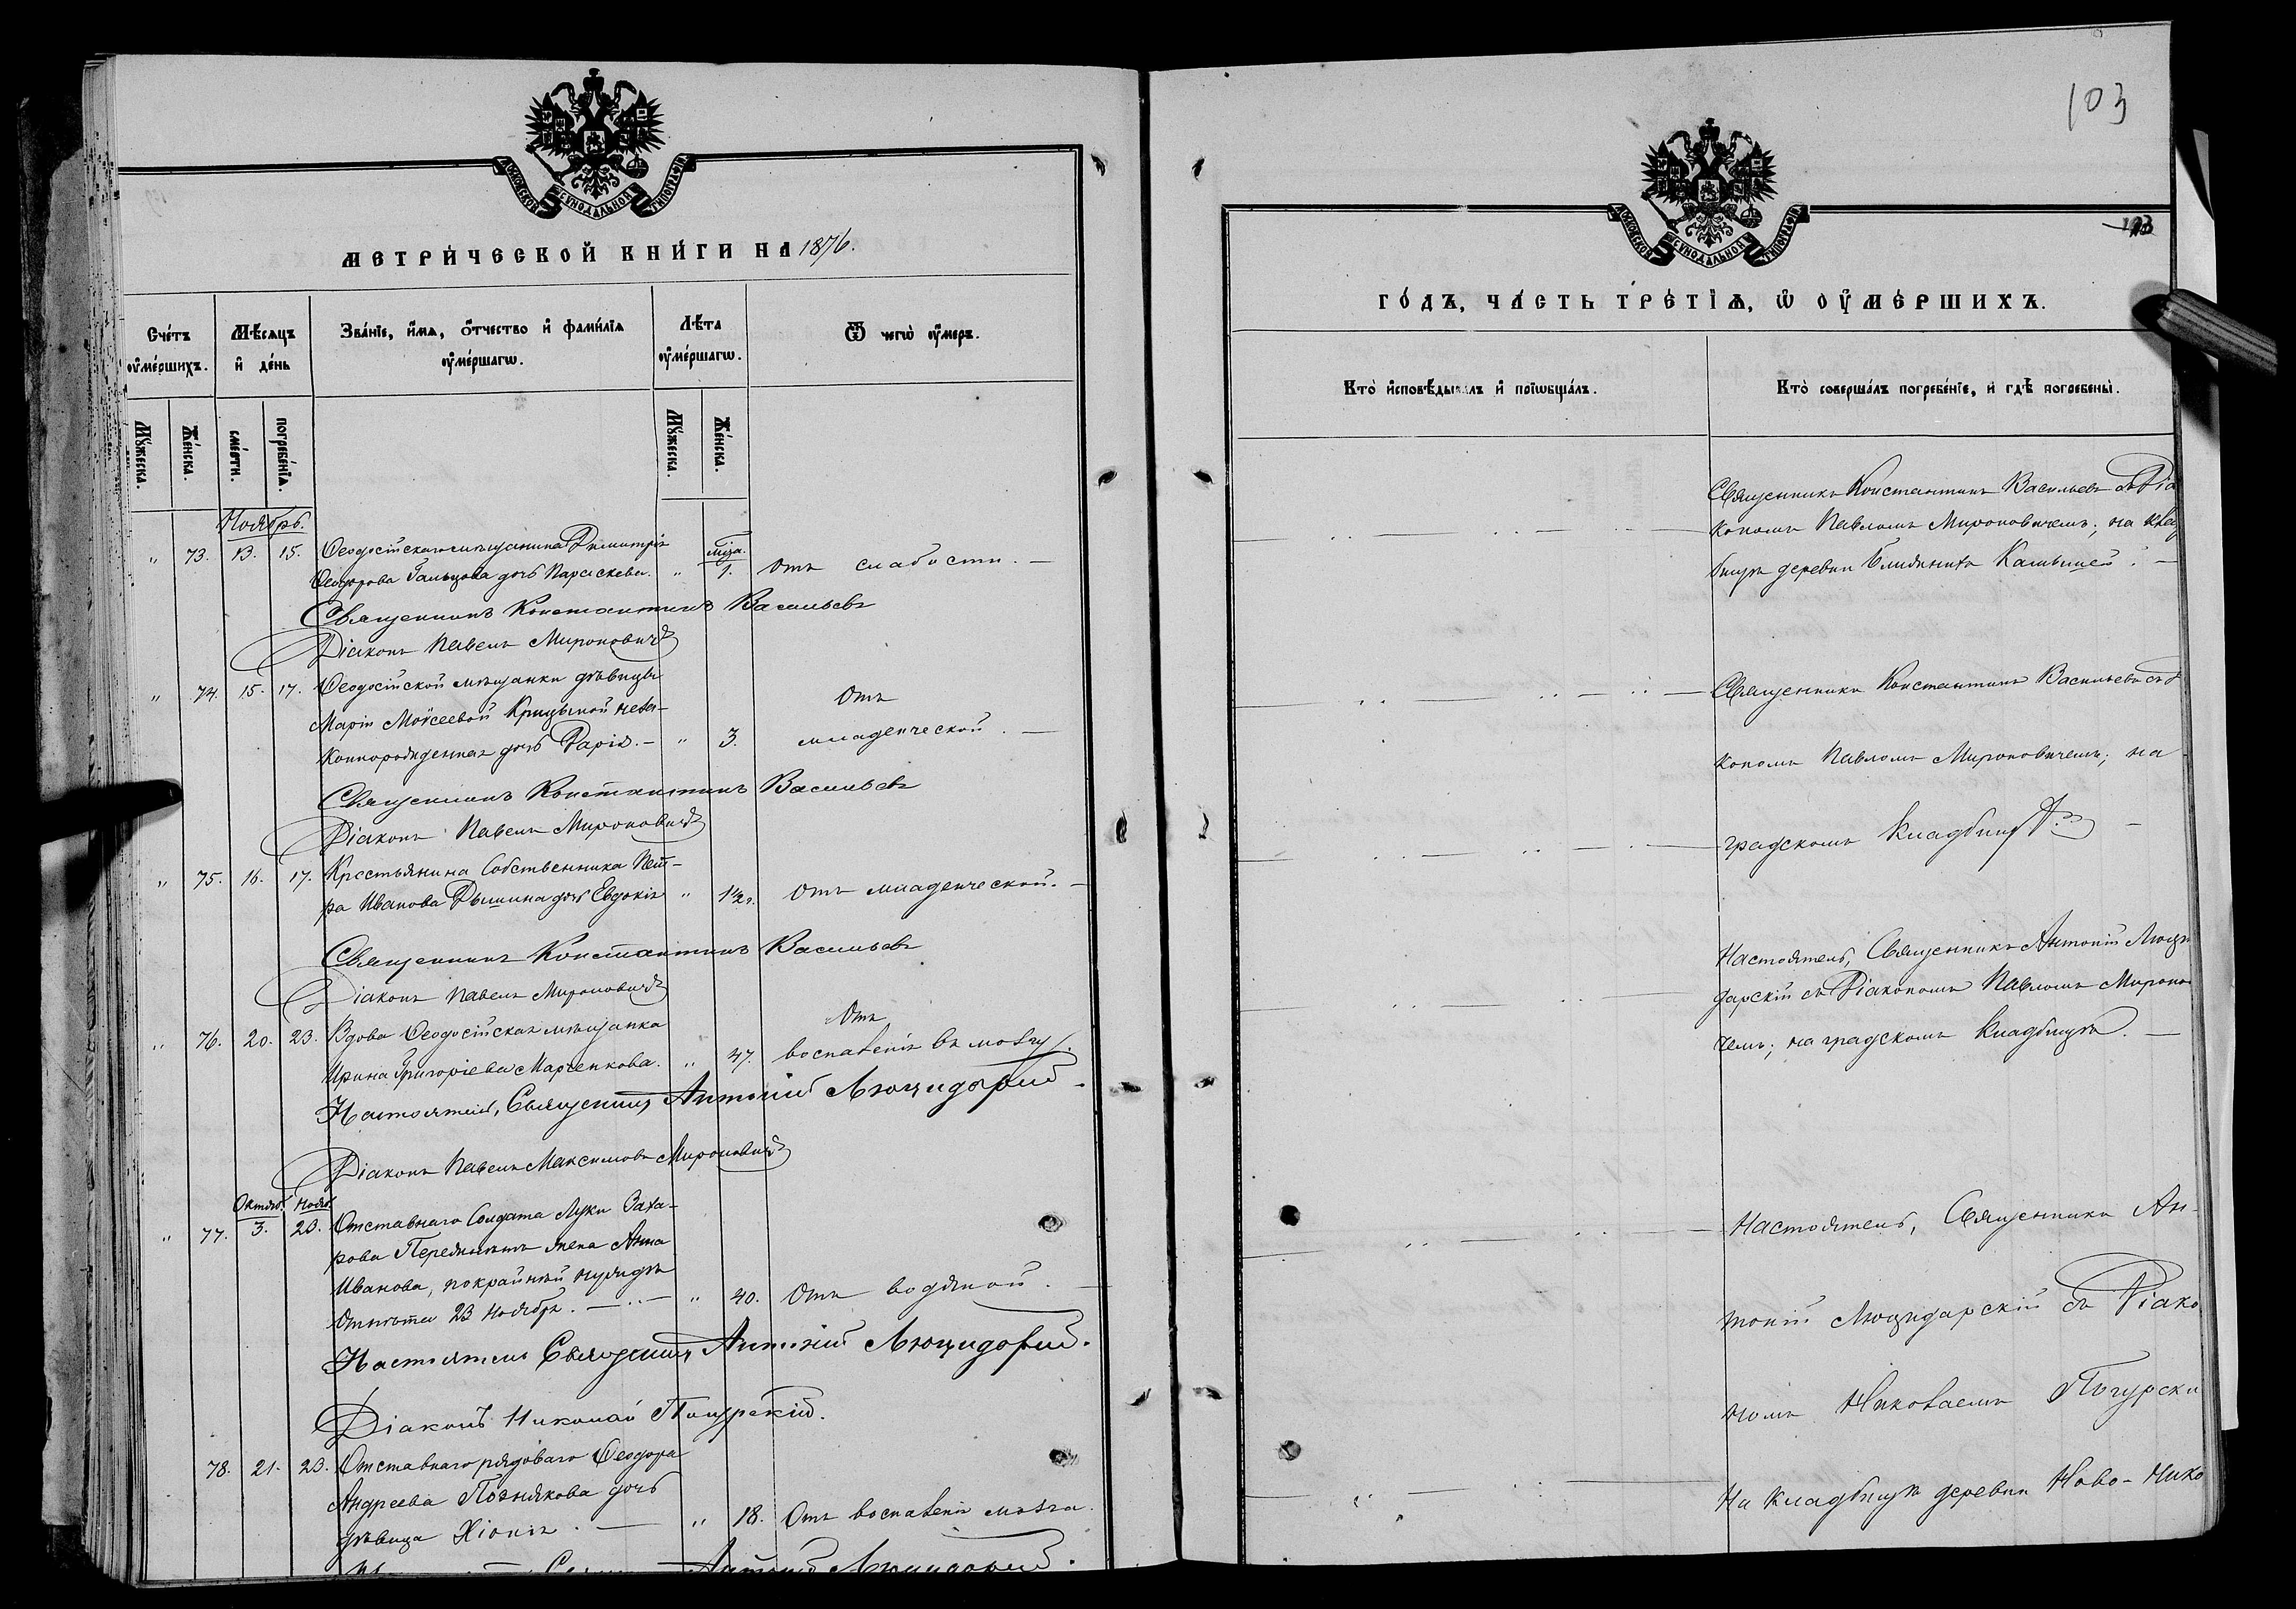 103
МОСКОВСКОЙ СѴНОДАЛЬНОЙ ТИПОГРАФІИ
МЕТРИ́ЧЕСКОЙ КНИ́ГИ НА 1876.
Сче́тъ оу҆ме́ршихъ.
Мѣ́сяцъ и҆ де́нь
Зва́нїе, и҆́мѧ, ѻ҆́тчество и҆ фами́лїѧ оу҆ме́ршагѡ.
Лѣ́та оу҆ме́ршагѡ.
Ѿ чегѡ̀ оу҆́меръ.
Мꙋ́жеска.
Же́нска.
сме́рти.
погребе́нїѧ.
Мꙋ́жеска.
Же́нска.
Ноябрь.
" 73. 13. 15. Ѳеодосійскаго мѣщанина Димитрія
Ѳеодорова Гальцова дочь Параскева. " мѣся. 1. Отъ слабости. —
Священникъ Константинъ Васильевъ
Діаконъ Павелъ Мироновичъ
" 74. 15. 17. Ѳеодосійской мѣщанки дѣвицы
Маріи Моѵсеевой Крицыной неза-
коннорожденная дочь Дарія. — " 3. Отъ младенческой. —
Священникъ Константинъ Васильевъ
Діаконъ Павелъ Мироновичъ
" 75. 16. 17. Крестьянина Собственника Пет-
ра Иванова Дѣшина дочь Евдокія " 1½ г. Отъ младенческой. —
Священникъ Константинъ Васильевъ
Діаконъ Павелъ Мироновичъ
" 76. 20. 23. Вдова Ѳеодосійская мѣщанка
Ирина Григоріева Марченкова. " 47. Отъ воспаленія въ мозгу.
Настоятель, Священникъ Антоній Люцидарскій.
Діаконъ Павелъ Максимовъ Мироновичъ
Октяб. Нояб.
" 77. 3. 20. Отставнаго Солдата Луки Заха-
рова жена Анна
Иванова, по крайней нуждѣ
отпѣта 23 Ноября. — " — " 40. Отъ водяной. —
Настоятель Священникъ Антоній Люцидарскій.
Діаконъ Николай Пигурскій.
78. 21. 23. Отставнаго рядоваго Ѳеодора
Андреева Познякова дочь
дѣвица Хіонія. — " 18. Отъ воспаленія мозга.
Антоній Люцидарскій.
МОСКОВСКОЙ СѴНОДАЛЬНОЙ ТИПОГРАФІИ
103
ГО́ДЪ, ЧА́СТЬ ТРЕ́ТЇѦ, Ѡ҆ ОУ҆МЕ́РШИХЪ.
Кто̀ и҆сповѣ́дывалъ и҆ прїѡбща́лъ.
Кто̀ соверша́лъ погребе́нїе, и҆ гдѣ̀ погребены̀.
Священникъ Константинъ Васильевъ съ Діа
кономъ Павломъ Мироновичемъ; на клад
бищѣ деревни Ближнихъ Камышей. —
Священникъ Константинъ Васильевъ съ Д
кономъ Павломъ Мироновичемъ; на
градскомъ кладбищѣ —
Настоятель, Священникъ Антоній Люци
дарскій съ Діакономъ Павломъ Миронови
чемъ; на градскомъ кладбищѣ. —
Настоятель, Священникъ Ан-
тоній Люцидарскій съ Діако
номъ Николаемъ Пигурски
На кладбищѣ деревни Ново-Нико